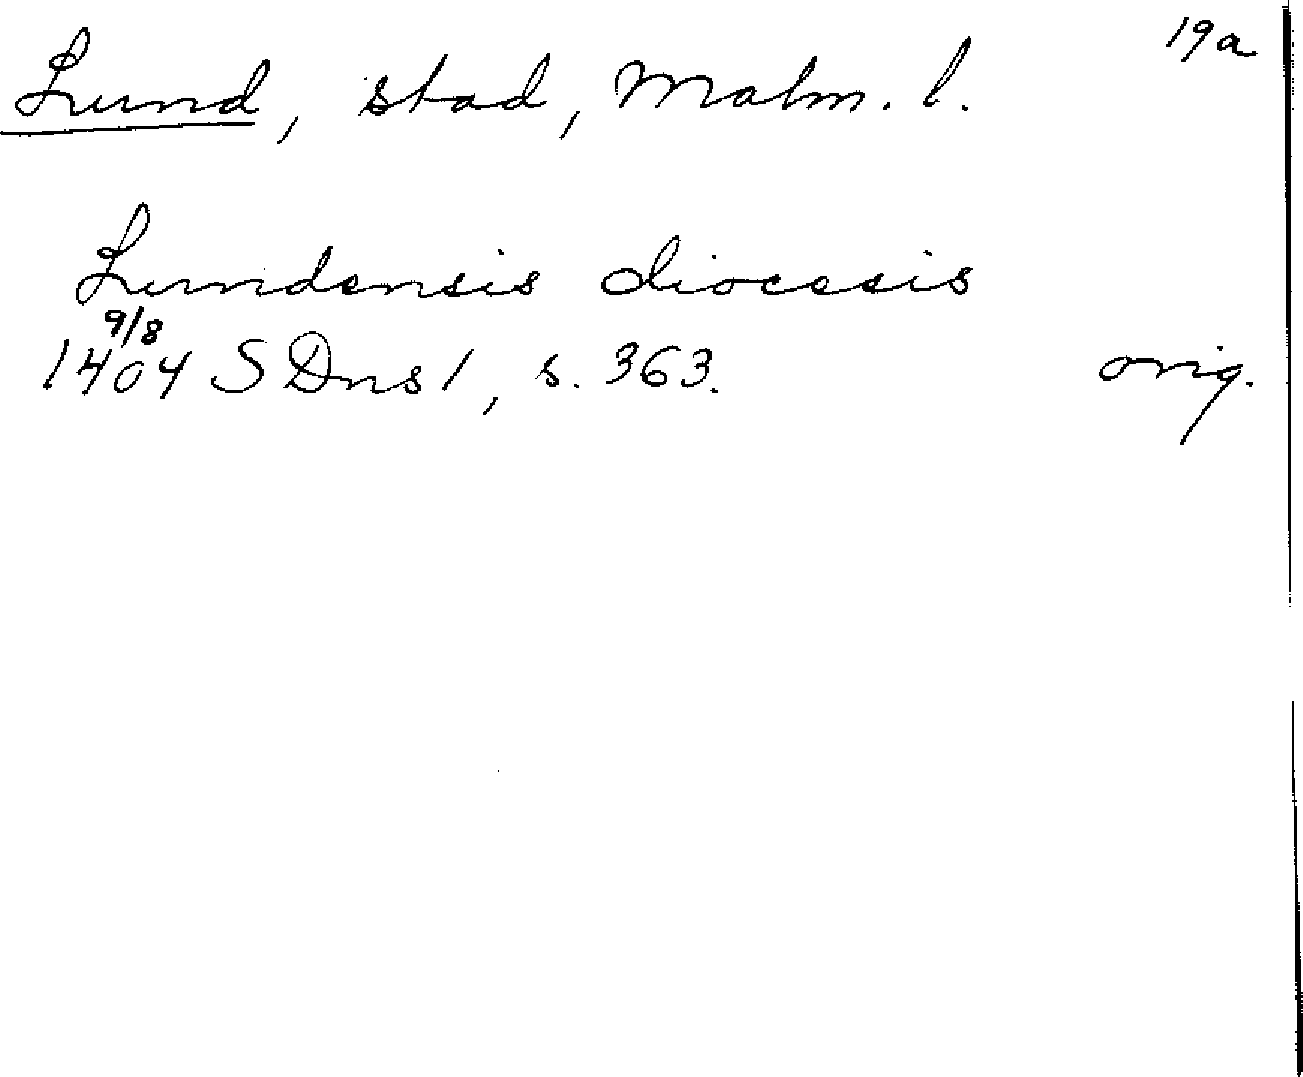 19a
Lund, stad, Malm. l.
Lundensis diocesis
9/8
1404 SDns1, s. 363. orig.